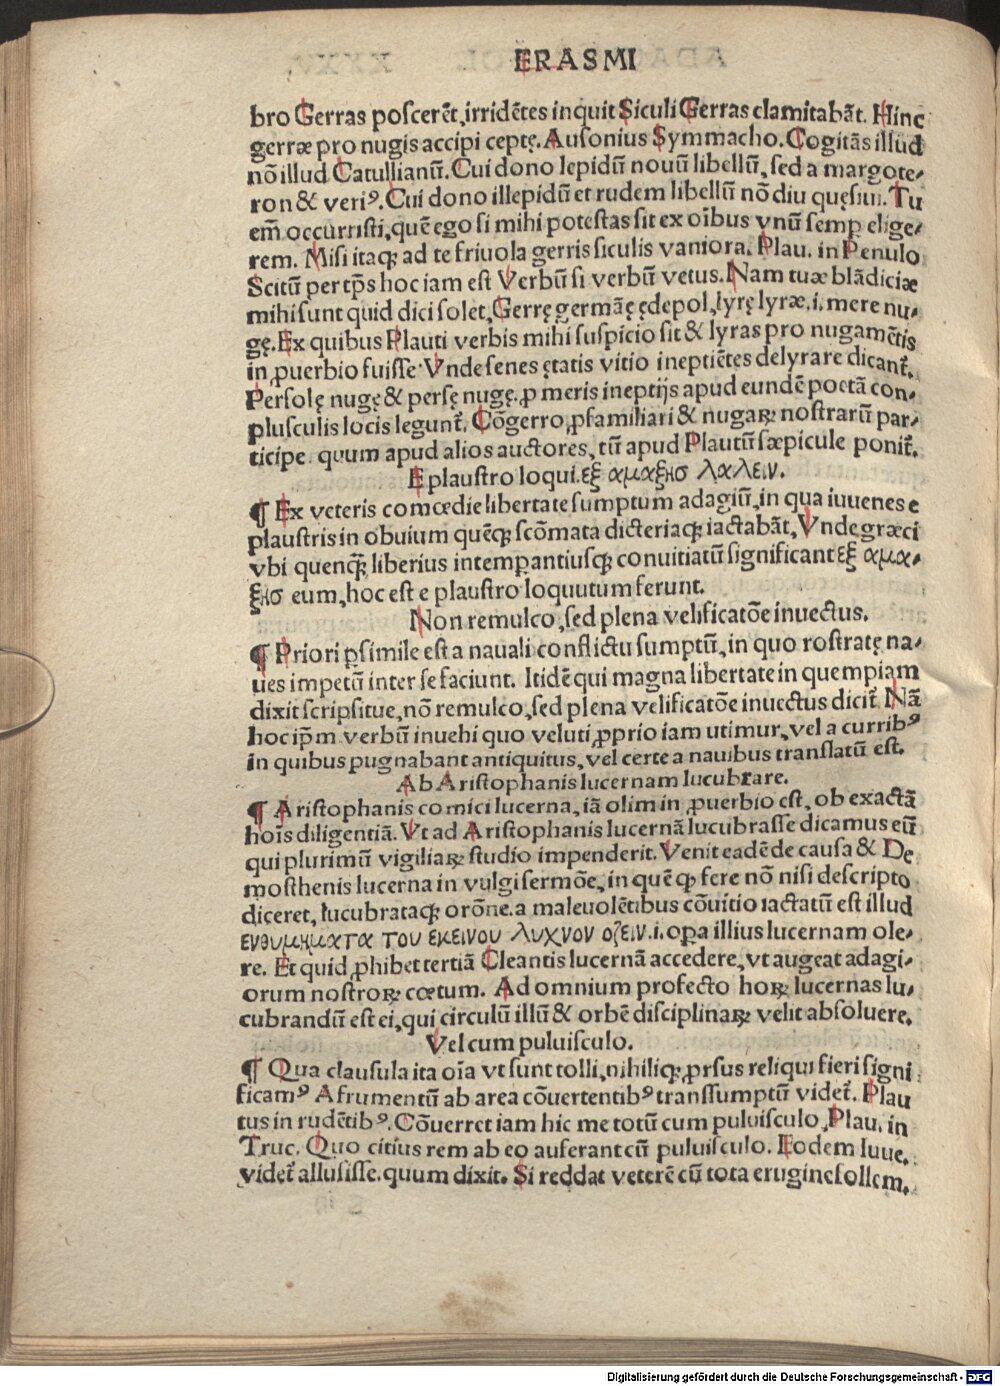 ERASMI
bro Gerras poſcerēt, irridētes inquit Siculi Gerras clamitabāt. Hinc
gerræ pro nugis accipi ceptę. Auſonius Symmacho. Cogitās illud
nō illud Catullianū. Cui dono lepidū nouū libellū, ſed a margote⸗
ron & veriꝰ. Cui dono illepidū et rudem libellū nō diu quęſiui. Tu
em̄ occurriſti, quē ego ſi mihi poteſtas ſit ex oībus vnū ſemꝑ elige⸗
rem. Miſi itaqꝫ ad te friuola gerris ſiculis vaniora. Plau. in Penulo
Scitū per tp̄s hoc iam eſt Verbū ſi verbū vetus. Nam tuæ blādiciæ
mihi ſunt quid dici ſolet, Gerrę germāę ędepol, lyrę lyræ .i. mere nu⸗
gę. Ex quibus Plauti verbis mihi ſuſpicio ſit & lyras pro nugamētis
in ꝓuerbio fuiſſe. Vnde ſenes ętatis vitio ineptiētes delyrare dicant᷑.
Perſolę nugę & perſę nugę. ꝓ meris ineptijs apud eundē poetā con⸗
pluſculis locis legunt᷑. Cōgerro, ꝓ familiari & nugaꝝ noſtrarū par⸗
ticipe. quum apud alios auctores, tū apud Plautū ſæpicule ponit᷑.
E plauſtro loqui. εξ αμαξησ λαλειν.
¶ Ex veteris comœdie libertate ſumptum adagiū, in qua iuuenes e
plauſtris in obuium quēqꝫ ſcōmata dicteriaqꝫ iactabāt, Vnde græci
vbi quenqꝫ liberius intemꝑantiuſqꝫ conuitiatū ſignificant εξ αμα⸗
ξησ eum, hoc eſt e plauſtro loquutum ferunt.
Non remulco, ſed plena velificatōe inuectus.
¶ Priori ꝑſimile eſt a nauali conflictu ſumptū, in quo roſtratę na⸗
ues impetū inter ſe faciunt. Itidē qui magna libertate in quempiam
dixit ſcripſitue, nō remulco, ſed plena velificatōe inuectus dicit᷑. Nā
hoc ip̄m verbū inuehi quo veluti ꝓprio iam utimur, vel a curribꝰ
in quibus pugnabant antiquitus, vel certe a nauibus tranſlatū eſt.
Ab Ariſtophanis lucernam lucubrare.
¶ Ariſtophanis comici lucerna, iā olim in ꝓuerbio eſt, ob exactā
hoīs diligentiā. Vt ad Ariſtophanis lucernā lucubraſſe dicamus eū
qui plurimū vigiliaꝝ ſtudio impenderit. Venit eadē de cauſa & De
moſthenis lucerna in vulgi ſermōe, in quē qꝫ fere nō niſi deſcripto
diceret, lucubrataqꝫ orōne. a maleuolētibus cōuitio iactatū eſt illud
ενθυμηματα του εκεινου λυχνον οζειν .i. oꝑa illius lucernam ole⸗
re. Et quid ꝓhibet tertiā Cleantis lucernā accedere, vt augeat adagi⸗
orum noſtroꝝ cœtum. Ad omnium profecto hoꝝ lucernas lu⸗
cubrandū eſt ei, qui circulū illū & orbē diſciplinaꝝ velit abſoluere.
Vel cum puluiſculo.
¶ Qua clauſula ita oīa vt ſunt tolli, nihiliqꝫ ꝓrſus reliqui fieri ſigni
ficamꝰ A frumentū ab area cōuertentibꝰ tranſſumptū videt᷑. Plau
tus in rudētibꝰ. Cōuerret iam hic me totū cum puluiſculo, Plau. in
Truc. Quo citius rem ab eo auferant cū puluiſculo. Eodem Iuue.
videt᷑ alluſiſſe. quum dixit. Si reddat veterē cū tota erugine follem.
Digitalisierung gefördert durch die Deutsche Forschungsgemeinschaft - DFG